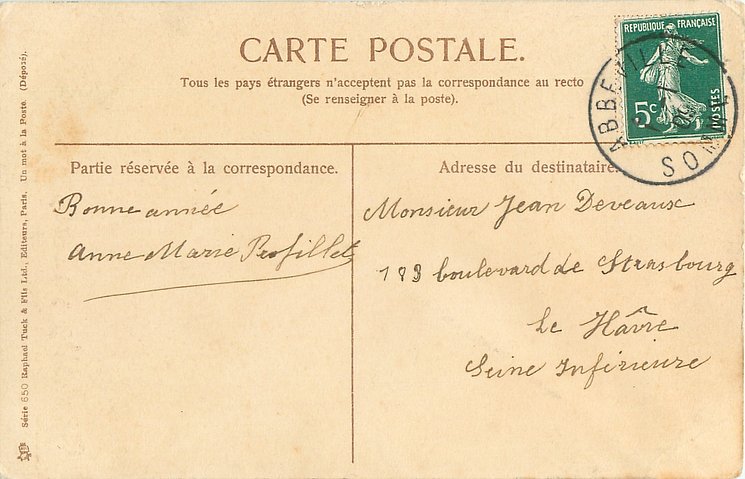 CARTE POSTALE.
Tous les pays étrangers n'acceptent pas la correspondance au recto
(Se renseigner à la poste).
REPUBLIQUE FRANÇAISE
5c
POSTES
ABBEVILLE
SOMME
09
Partie réservée à la correspondance.
Bonne année
Anne Marie Profillet
Adresse du destinataire.
Monsieur Jean Deveaux
183 boulevard de Strasbourg
Le Hâvre
Seine Inférieure
Série 650 Raphael Tuck & Fils Ltd., Editeurs, Paris. Un mot à la Poste. (Déposé).